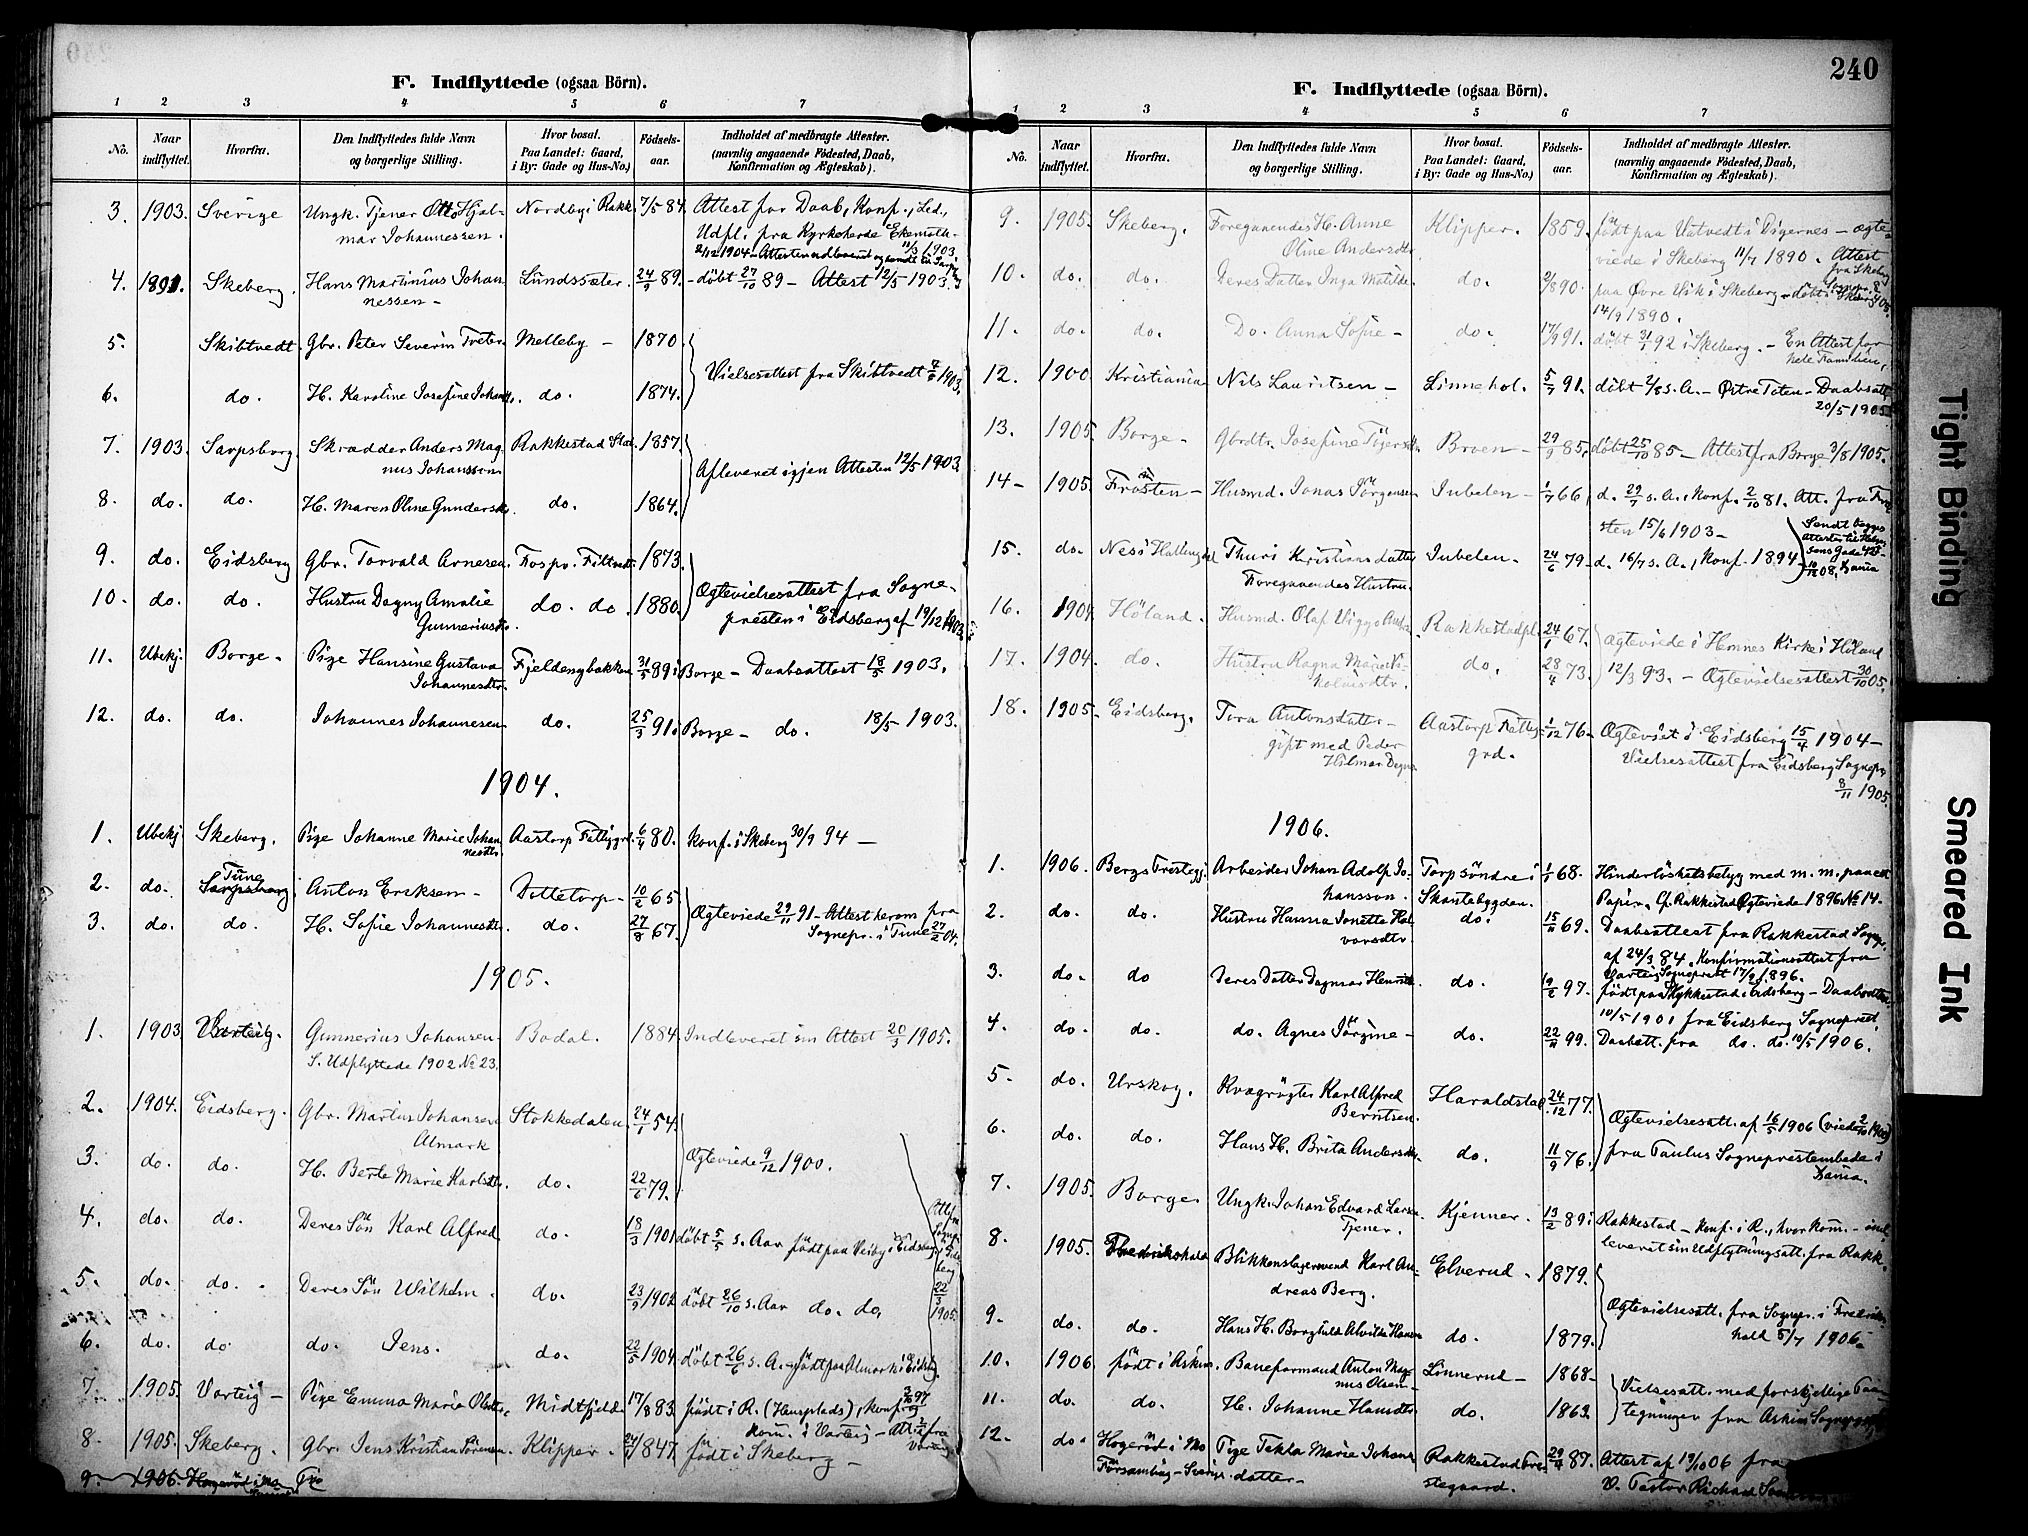 240
F. Indflyttede (ogsaa Börn).
1 2 3 4 5 6 7
No. Naar indflyttet. Hvorfra. Den Indflyttedes fulde Navn og borgerlige Stilling. Hvor bosat. Paa Landet: Gaard, i By: Gade og Hus-No.) Födsels-aar. Indholdet af medbragte Attester. (navnlig angaaende Födested, Daab, Konfirmation og Ægteskab).
3. 1903. Sverige Ungk. Tjener Otto Hjal- Nordby i Rakk. 7/5 84. Attest for Daab, Konf., Led.,
mar Johannessen. Udfl. fra Kyrkoherde
4. 1891. Skeberg. Hans Martinius Johan Lundssæter. 24/9 89. döbt 27/10 89 – Attest 12/5 1903.
nessen –
5. Skibtvedt. Gbr. Peter Severin Melleby – 1870.
Vielsesattest fra Skibtvedt 1903.
6. do. H. Karoline Josefine do. 1874.
7. 1903. Sarpsborg Skrædder Anders Mag Rakkestad 1857.
nus Johansson Afleveret igjen Attesten 12/5 1903.
8. do. do. H. Maren Oline Gundersd. do. 1864.
9. do. Eidsberg Gbr. Torvald Arnesen. Fosp. 1873.
Ægtevielsesattest fra Sogne-
10. do. do. Hustru Dagny Amalie do. do. 1880.
Gunneriusdtr. presten i Eidsberg af 19/12 1903.
11. Ubekj. Borge – Pige Hansine Gustava Fjeldengbakken 31/5 89 i Borge – Daabsattest 18/5 1903.
Johannesdtr.
12. do. do. Johannes Johannesen do. 25/3 91 i Borge – do. 18/5 1903.
1904.
1. Ubekj. Skeberg. Pige Johanne Marie Johan Aastorp Fattiggrd. 6/4 80. konf. i Skeberg 30/9 94 –
nesdtr.
Tune
2. do. Sarpsborg Anton Eriksen – Dettetorp – 10/2 65
Ægteviede 29/11 91 – Attest herom fra
3. do. do. H. Sofie Johannesdtr. do. 27/8 67. Sognepr. i Tune 27/2 04.
1905.
1. 1903 Varteig. Gunnerius Johansen Bodal. 1884. Indleveret sin Attest 20/3 1905.
S. Udflyttede 1902 No 23.
2. 1904. Eidsberg. Gbr. Martin Johansen Stokkedalen. 24/1 54.
Almark
Ægteviede 9/12 1900.
3. do. do. H. Berte Marie Karlsdtr. do. 22/6 79.
4. do. do. Deres Sön Karl Alfred do. 18/3 1901 döbt 5/5 s. Aar födt paa Veiby i Eidsberg
5. do. do. Deres Sön Wilhelm. do. 23/9 1902 döbt 26/10 s. Aar do. do.
22/3 1905.
6. do. do. do. Jens. do. 22/5 1904 döbt 26/6 s. A. – födt paa Almark i Eidsbg.
7. 1905. Varteig – Pige Emma Maria Olsdtr. Midtfjeld. 17/8 83. födt i R. (Husplads), konf. og
kom. i Varteig – Att. fra
Varteig
8. 1905. Skeberg. Gbr. Jens Kristian Sörensen. Klipper. 1847. födt i Skeberg –
9. 1906.
F. Indflyttede (ogsaa Börn).
1 2 3 4 5 6 7
No. Naar indflyttet. Hvorfra. Den Indflyttedes fulde Navn og borgerlige Stilling. Hvor bosat. Paa Landet: Gaard, i By: Gade og Hus-No.) Födsels-aar. Indholdet af medbragte Attester. (navnlig angaaende Födested, Daab, Konfirmation og Ægteskab).
9. 1905. Skeberg. Foregaaendes H. Anne Klipper. 1859. födt paa Utvedt i Digernes – ægte-
Oline Andersdtr. viede i Skeberg 11/7 1890. Attest
10. do. do. Deres Datter Inga Matilde do. 2/8 90. paa Övre Vik i Skeberg – döbt i Skeberg
14/9 1890.
11. do. do. Do. Anna Sofie – do. 17/9 91. döbt 31/1 92 i Skeberg. – En Attest for
hele Familien.
12. 1900 Kristiania Nils Lauritsen – Linnehol. 5/7 91. döbt 2/8 s. A. – Östre Toten – Daabsatt.
20/5 1905
13. 1905. Borge – Gbrdtr. Josefine Broen – 29/9 85, döbt 25/10 85 – Attest fra Borge 3/8 1905.
14 – 1905. Frosten – Husmd. Jonas Jörgensen Jubelen – 1/7 66, d. 29/7 s. A., konf. 2/10 81. Att. fra Fro
sten 15/6 1903 –
15. do. Nes i Hallingdal Thuri Kristiansdatter Jubelen – 24/6 79 – d. 16/7 s. A., konf. 1894
Foregaaendes Hustru.
16. 1904. Höland. Husmd. Olaf Viggo Rakkestadpl. 24/1 67.
Ægteviede i Hemnes Kirke i Höland
17. 1904. do. Hustru Ragna Marie Ni- do. 28/4 73. 12/3 93. – Ægtevielsesattest 30/10 05.
kolaisdtr.
18. 1905. Eidsberg. Tora Antonsdatter – Aastorp Fattig 1/12 76 – Ægteviet i Eidsberg 15/4 1904 –
gift med Peder grd. Vielsesattest fra Eidsberg Sognepr.
Hilmar 8/11 1905.
1906.
1. 1906. Bergs Prestegj. Arbeider Johan Adolf Jo- Torp söndre i 68. Hinderlöshetsbetyg med m. m. paa et
hansson. Skautebygden. Papir. Cf. Rakkestad Ægteviede 1896 No 14.
2. do. do. Hustru Hanna Jonette Hal do. 69. Daabsattest fra Rakkestad Sognepr.
vorsdtr. af 24/3 84. Konfirmationsattest fra
Varteig Sogneprest 17/2 1896.
3. do. do Deres Datter Dagmar do. 19/2 97. födt paa Stykkestad i Eidsberg – Daabsattest
10/5 1901 fra Eidsberg Sogneprest.
4. do. do. do. Agnes Jörgine – do. 22/11 99. Daabatt. fra do. do. 10/5 1906.
5. do. Urskog. Kvægrögter Karl Alfred Haraldstad 24/12 77.
Berntsen.
Ægtevielsesatt. af 16/5 1906 (viede 1900)
6. do. do. Hans H. Brita Andersdtr. do. 11/9 76. fra Paulus Sogneprestembede i
Krania.
7. 1905. Borge. Ungk. Johan Edvard Larsen Kjenner. 13/2 89 i Rakkestad – konf. i R., hvor kom. – ind
Tjener. leveret sin Udflytningsatt. fra Rakk.
8. 1905. Fredrikshald Blikkenslagersvend Karl An Elverud. 1879.
dreas Berg.
Ægtevielsesatt. fra Sognepr. i Fredriks
9. do. do. Hans H. Borghild Alvilde do. 1879. hald 5/7 1906.
10. 1906 födt i Askim. Baneformand Anton Mag Linnerud – 1868 –
nus Olsen – Vielsesatt. med forskjellige Paa
11. do. do. H. Johanne Hansdtr. do. 1863. tegninger fra Askim Sognepr.
12. do. Hogeröd i Mo Pige Tekla Marie Johans Rakkestad Pre 29/4 87. Attest af 19/10 06 fra
Församling – Sverige. datter – stegaard. V. Pastor Richard
Tight Binding
Smeared Ink